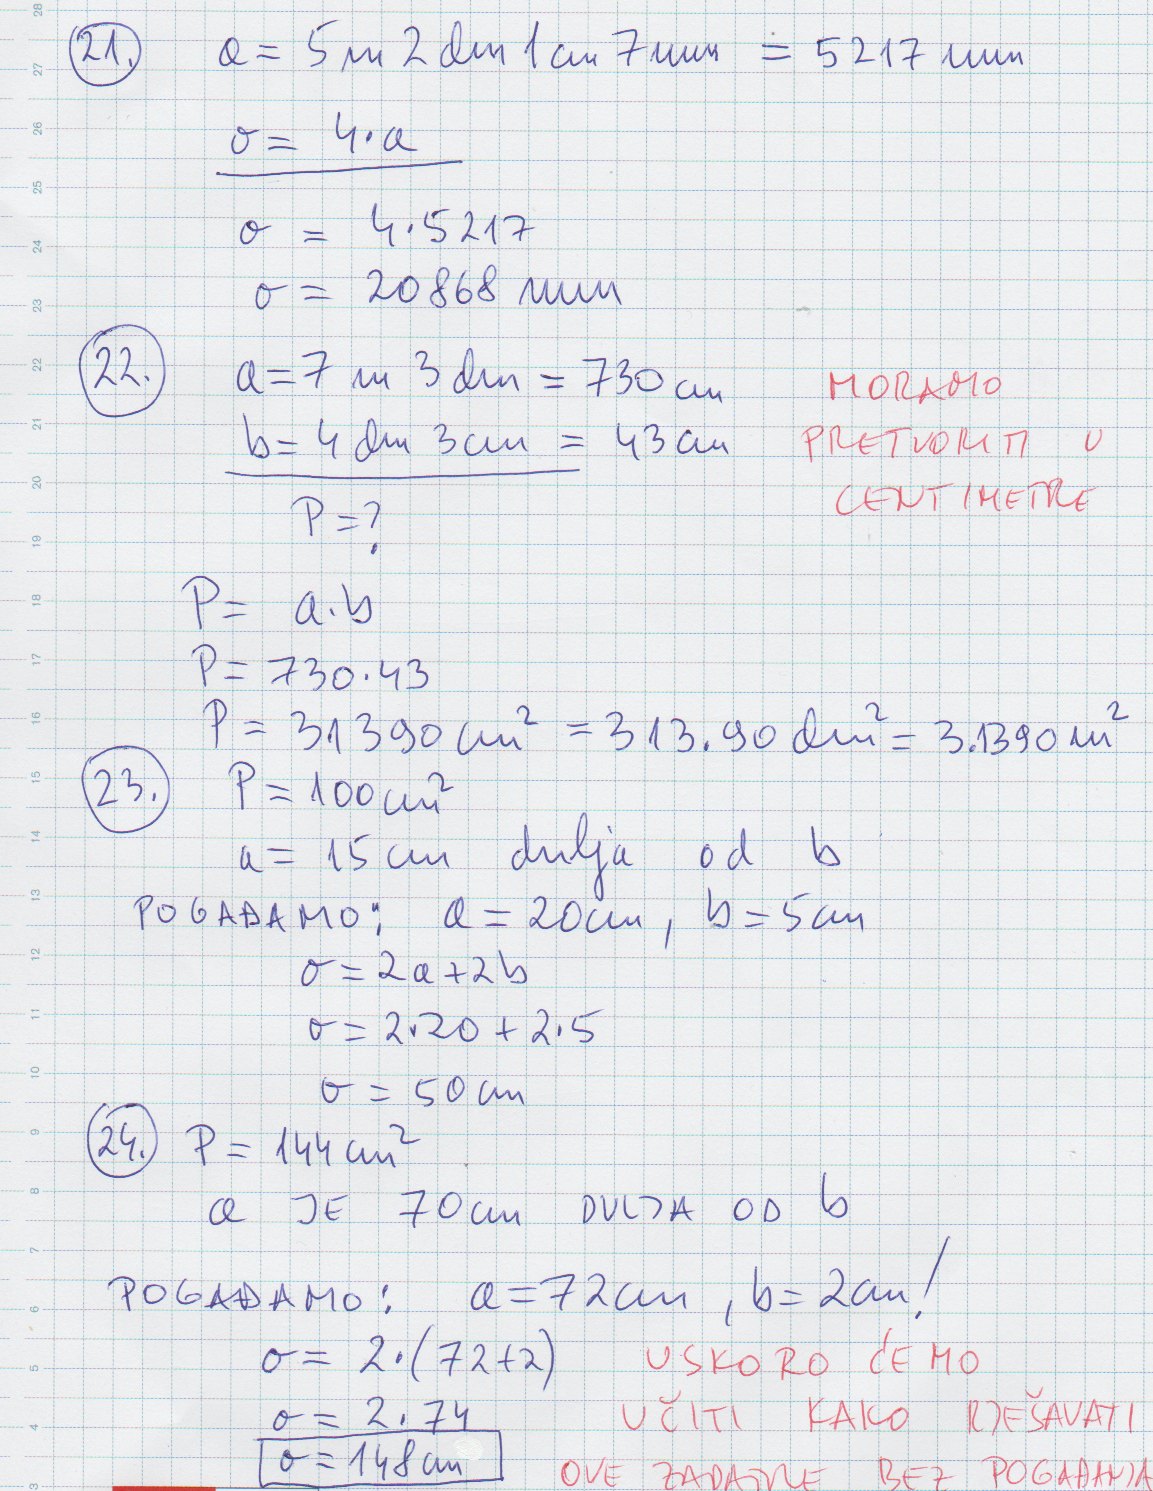 21. a = 5 m 2 dm 1 cm 7 mm = 5217 mm
o = 4·a
o = 4·5217
o = 20868 mm
22. a = 7 m 3 dm = 730 cm MORAMO
b = 4 dm 3 cm = 43 cm PRETVORITI U
CENTIMETRE
P = ?
P = a·b
P = 730·43
P = 31390 cm² = 313.90 dm² = 3.1390 m²
23. P = 100 cm²
a = 15 cm dulja od b
POGAĐAMO: a = 20 cm, b = 5 cm
o = 2a + 2b
o = 2·20 + 2·5
o = 50 cm
24. P = 144 cm²
a JE 70 cm DULJA OD b
POGAĐAMO: a = 72 cm, b = 2 cm!
o = 2·(72+2) USKORO ĆEMO
o = 2·74 UČITI KAKO RJEŠAVATI
o = 148 cm OVE ZADATKE BEZ POGAĐANJA
28
27
26
25
24
23
22
21
20
19
18
17
16
15
14
13
12
11
10
9
8
7
6
5
4
3